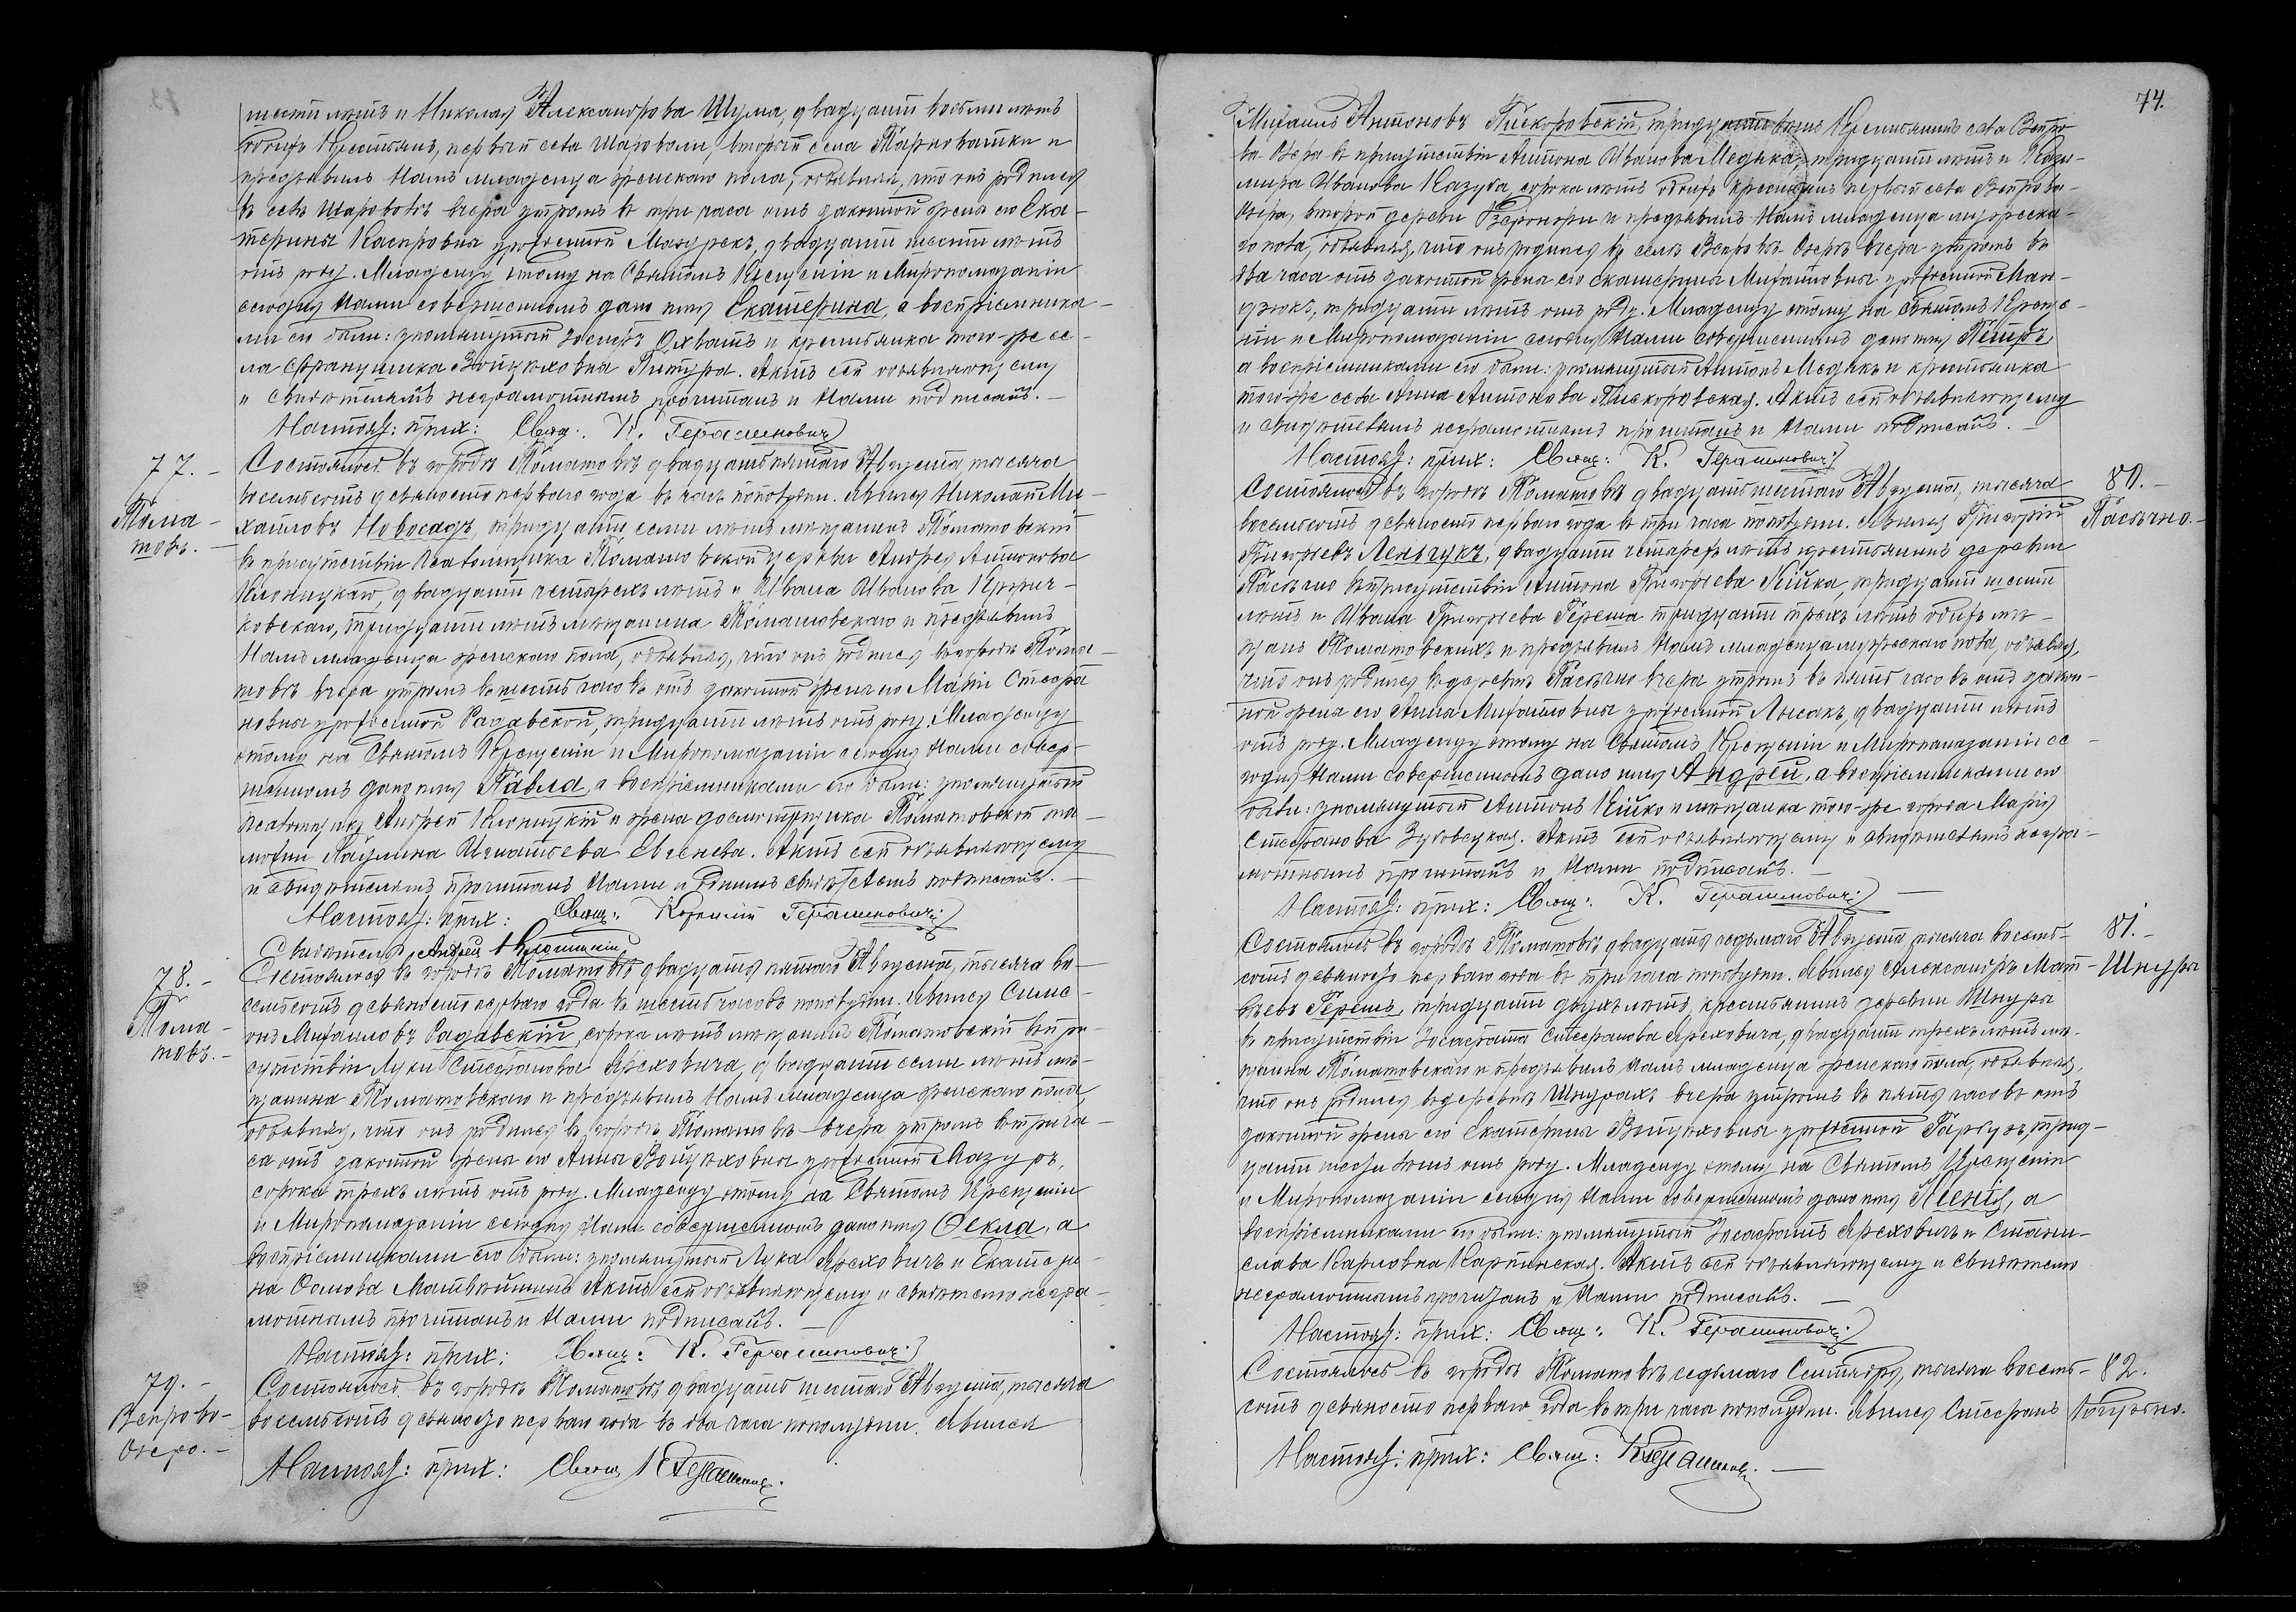 шести лѣтъ и Николая Александрова Шума, двадцати восьми лѣтъ
обоихъ Крестьянъ, первый села Шаровали, вторый села Тарноватки и
предъявилъ Намъ младенца женскаго пола, объявили, что онъ родился
въ селѣ Шароволѣ вчера утромъ въ три часа отъ законной жены его Ека-
терины Каспровны урожденной Мазурекъ, двадцати шести лѣтъ
отъ роду. Младенцу этому на Святомъ Крещеніи и Миропомазаніи
сегодня Нами совершенномъ дано имя Екатерина, а воспріемника-
ми его были: упомянутый Іосифъ Охватъ и крестьянка того-же се-
ла Францишка Войцѣховна Питура. Актъ сей объявляющему
и свидѣтелямъ неграмотнымъ прочитанъ и Нами подписанъ. —
Настоят: прих: Свящ: К. Герасимовичъ
77. — Состоялось въ городѣ Томашовѣ двадцать пятаго Августа, тысяча
восемьсотъ девяносто перваго года въ часъ пополудни. Явился Николай Ми-
Тома- хайловъ Новосадъ, тридцати семи лѣтъ мѣщанинъ Томашовскій
шовъ. — въ присутствіи Псаломщика Томашовской церкви Андрея Антонова
Клоницкаго, двадцати четырехъ лѣтъ и Ивана Иванова
ковскаго, тридцати лѣтъ мѣщанина Томашовскаго и предъявилъ
Намъ младенца женскаго пола, объявляя, что онъ родился въ городѣ Тома-
шовѣ вчера утромъ въ шесть часовъ отъ законной жены его Маріи Стефа-
новны урожденной Радавской, тридцати лѣтъ отъ роду. Младенцу
этому на Святомъ Крещеніи и Миропомазаніи сегодня Нами совер-
шенномъ дано имя Павла, а воспріемниками его были: упомянутый
псаломщикъ Андрей Клоницкій и жена досмотрщика Томашовской та-
можни Павлина Игнатьева Евсенева. Актъ сей объявляющему
и свидѣтелямъ прочитанъ Нами и однимъ свидѣтелемъ подписанъ. —
Настоят: прих: Свящ: Корнилій Герасимовичъ
Свидѣтель Андрей Клоницкій
78. — Состоялось въ городѣ Томашовѣ двадцать пятаго Августа, тысяча во-
семьсотъ девяносто перваго года въ шесть часовъ пополудни. Явился Симе-
Тома- онъ Михаиловъ Радавскій, сорока лѣтъ мѣщанинъ Томашовскій въ при-
шовъ. — сутствіи Луки Стефанова Яреховича, двадцати семи лѣтъ мѣ-
щанина Томашовскаго и предъявилъ Намъ младенца женскаго пола,
объявляя, что онъ родился въ городѣ Томашовѣ вчера утромъ въ три ча-
са отъ законной жены его Анны Войцѣховны урожденной Мазуръ,
сорока трехъ лѣтъ отъ роду. Младенцу этому на Святомъ Крещеніи
и Миропамазаніи сегодня Нами совершенномъ дано имя Ѳекла, а
воспріемниками его были: упомянутый Лука Яреховичъ и Екатери-
на Ѳомова Матвѣйшинъ Актъ сей объявляющему и свидѣтелю негра-
мотнымъ прочитанъ и Нами подписанъ. —
Настоят: прих: Свящ: К. Герасимовичъ
79. — Состоялось въ городѣ Томашовѣ двадцать шестаго Августа, тысяча
Вепрово- восемьсотъ девяносто перваго года въ два часа пополудни. Явился
Озеро. —
Настоят: прих: Свящ К Герасимов.
74.
Михаилъ Антоновъ Пискоровскій, тридцати Крестьянинъ села Вепро-
ва Озера въ присутствіи Антона Иванова Медяка, тридцати лѣтъ и Кази-
мира Иванова Казуба, сорока лѣтъ обоихъ крестьянъ первый села Вепрова-
Озера, второй деревни и предъявилъ Намъ младенца мужеска-
го пола, объявляя, что онъ родился въ селѣ Вепровѣ-Озерѣ вчера утромъ въ
два часа отъ законной жены его Екатерины Михайловны урожденной Ман-
дзюкъ, тридцати лѣтъ отъ роду. Младенцу этому на Святомъ Креще-
ніи и Миропомазаніи сегодня Нами совершенномъ дано имя Петръ,
а воспріемниками его были: упомянутый Антонъ Медякъ и крестьянка
того-же села Анна Антонова Пискоровская. Актъ сей объявляющему
и свидѣтелямъ неграмотнымъ прочитанъ и Нами подписанъ. —
Настоят: прих: Свящ: К. Герасимовичъ
Состоялось въ городѣ Томашовѣ двадцать шестаго Августа, тысяча 80. —
восемьсотъ девяносто перваго года въ три часа пополудни. Явился Григорій Пасѣчно. —
Григорьевъ Леньчукъ, двадцати четырехъ лѣтъ крестьянинъ деревни
Пасѣчно въ присутствіи Антона Григорьева Кійка, тридцати шести
лѣтъ и Ивана Григорьева Гереша тридцати трехъ лѣтъ обоихъ мѣ-
щанъ Томашовскихъ и предъявилъ Намъ младенца мужескаго пола, объявляя,
что онъ родился въ деревнѣ Пасѣчно вчера утромъ въ пять часовъ отъ закон-
ной жены его Анны Михайловны урожденной Лысакъ, двадцати лѣтъ
отъ роду. Младенцу этому на Святомъ Крещеніи и Миропомазаніи се-
годня Нами совершенномъ дано имя Андрей, а воспріемниками его
были: упомянутый Антонъ Кійко и мѣщанка того-же города Марія
Стефанова Зубовецкая. Актъ сей объявляющему и свидѣтелямъ негра-
мотнымъ прочитанъ и Нами подписанъ. —
Настоят: прих: Свящ: К. Герасимовичъ —
Состоялось въ городѣ Томашовѣ двадцать седьмаго Августа тысяча восемь- 81. —
сотъ девяносто перваго года въ три часа пополудни. Явился Александръ Мат- Шнуры
вѣевъ Герешъ, тридцати двухъ лѣтъ, крестьянинъ деревни Шнуры
въ присутствіи Іосафата Стефанова Яреховича, двадцати трехъ лѣтъ мѣ-
щанина Томашовскаго и предъявилъ Намъ младенца женскаго пола, объявляя,
что онъ родился въ деревнѣ Шнурахъ вчера утромъ въ пять часовъ отъ
законной жены его Екатерины Войцѣховны урожденной Гарбузъ, трид-
цати шести лѣтъ отъ роду. Младенцу этому на Святомъ Крещеніи
и Миропомазаніи сегодня Нами совершенномъ дано имя Ксенія, а
воспріемниками его были: упомянутый Іосафатъ Яреховичъ и Стани-
слава Карловна Карпинская. Актъ сей объявляющему и свидѣтелю
неграмотнымъ прочитанъ и Нами подписанъ. —
Настоят: прих: Свящ: К. Герасимовичъ
Состоялось въ городѣ Томашовѣ седьмаго Сентября, тысяча восемь- 82.
сотъ девяносто перваго года въ три часа пополудни. Явился Стефанъ
Настоят: прих: Свящ: К Герасимов. —